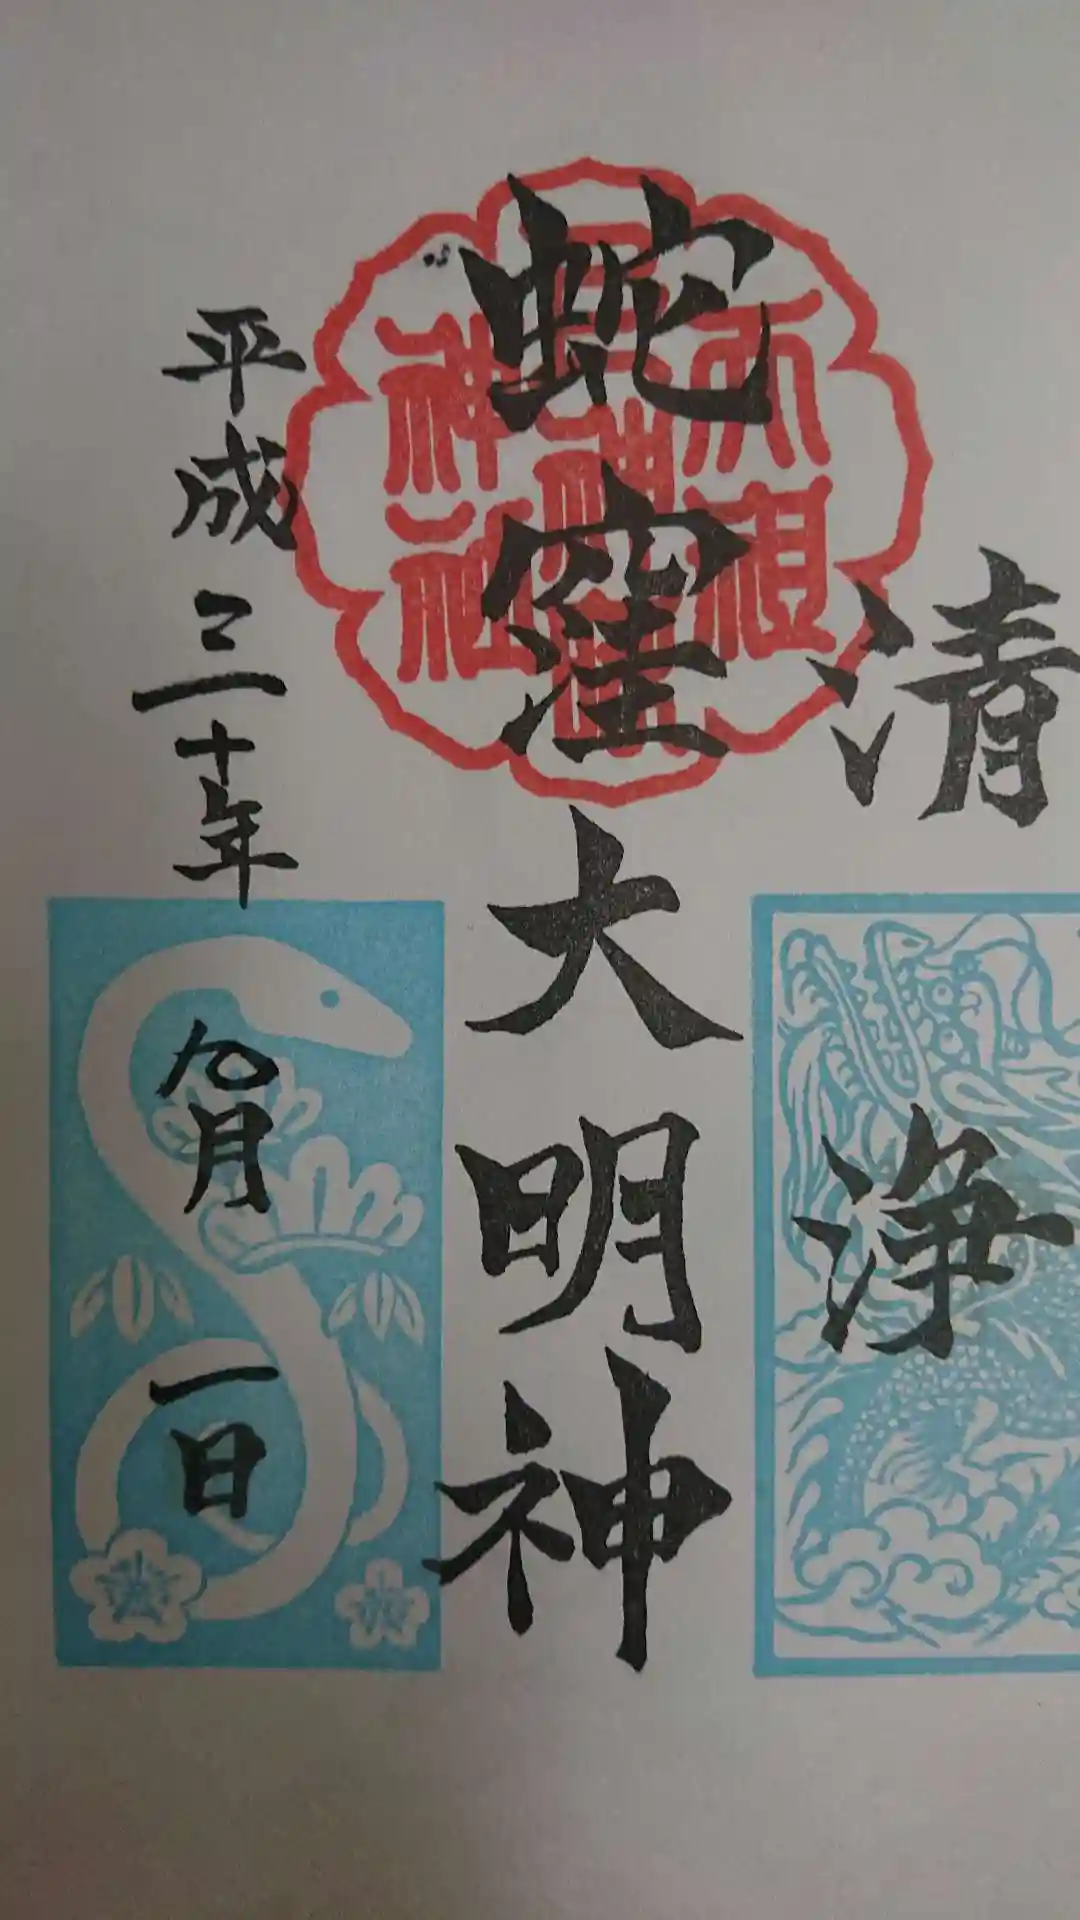 清浄
蛇窪大明神
天祖
神社
平成三十年
九月一日